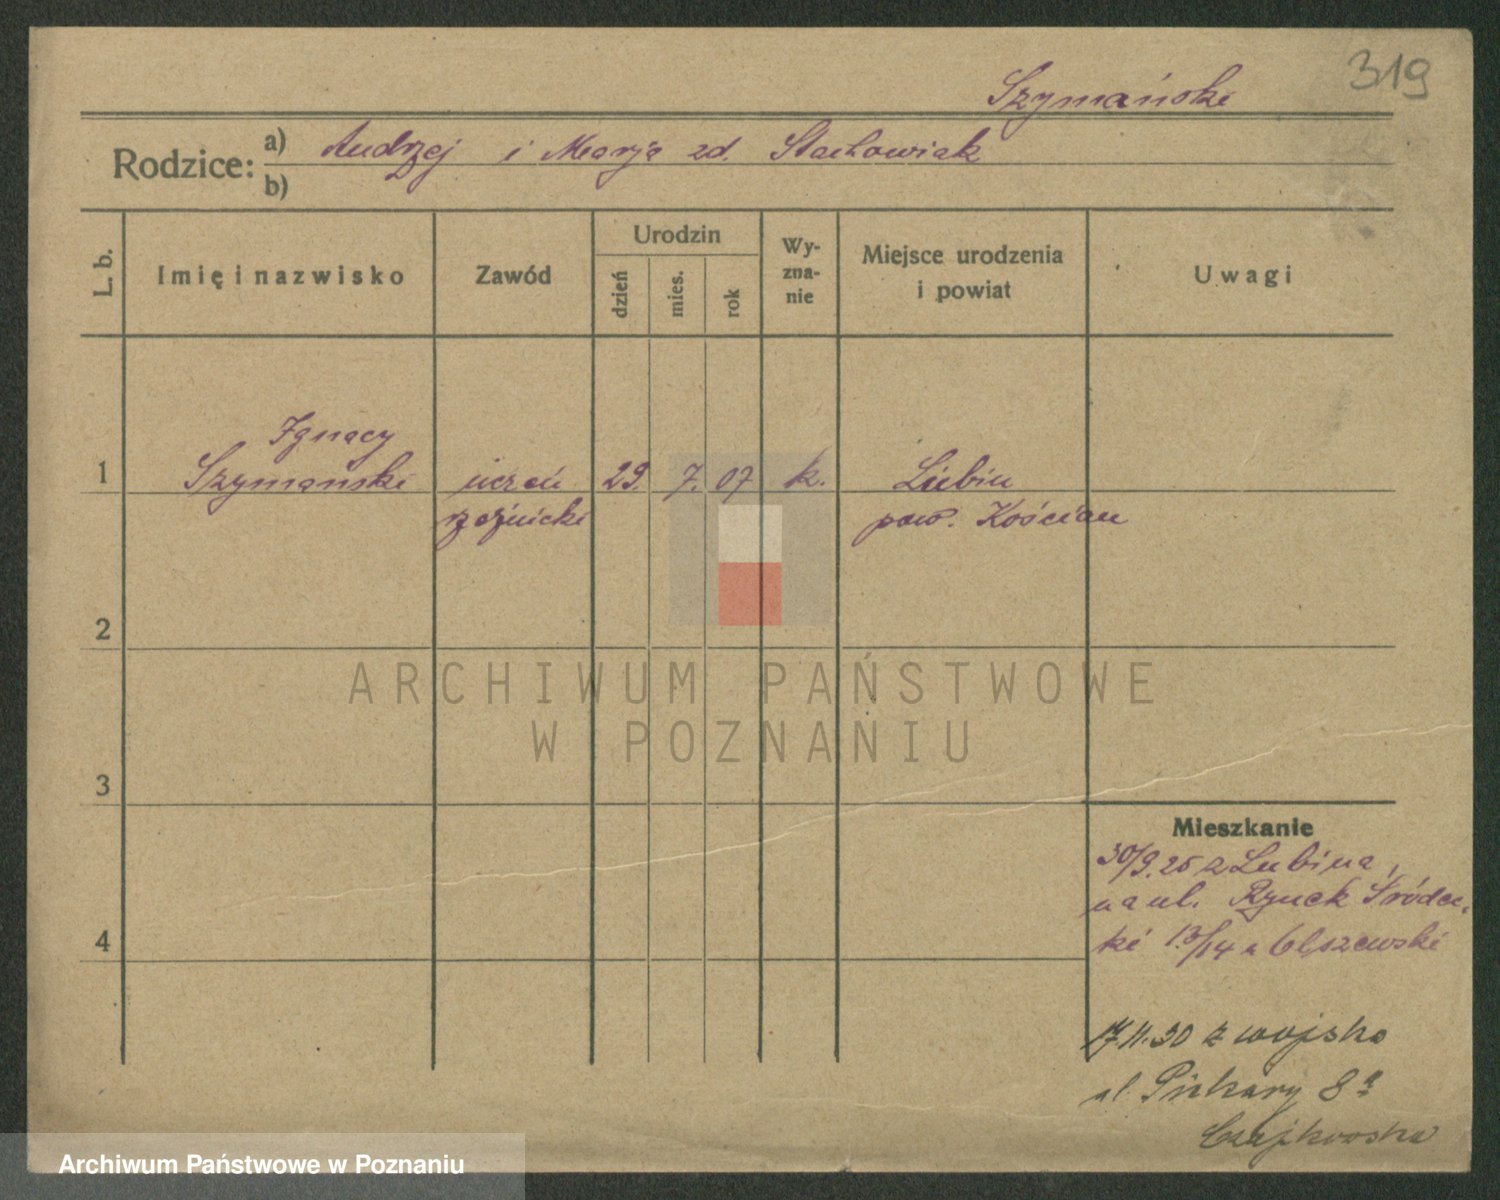 319
Szymański
Rodzice: a) Andrzej i Marja zd. Stachowiak
b)
L. b.
Imię i nazwisko
Zawód
Urodzin
dzień
mies.
rok
Wy-
zna-
nie
Miejsce urodzenia
i powiat
Uwagi
Ignacy
1 Szymański uczeń 29. 7. 07 k. Lubiń
rzeźnicki pow. Kościan
2
ARCHIWUM PAŃSTWOWE
W POZNANIU
3
Mieszkanie
30/9.25 z Lubina,
na ul. Rynek Śródec-
ki 13/14 u Olszewski
4
17.11.30 z wojska
ul. Piekary 8a
Czajkowska
Archiwum Państwowe w Poznaniu